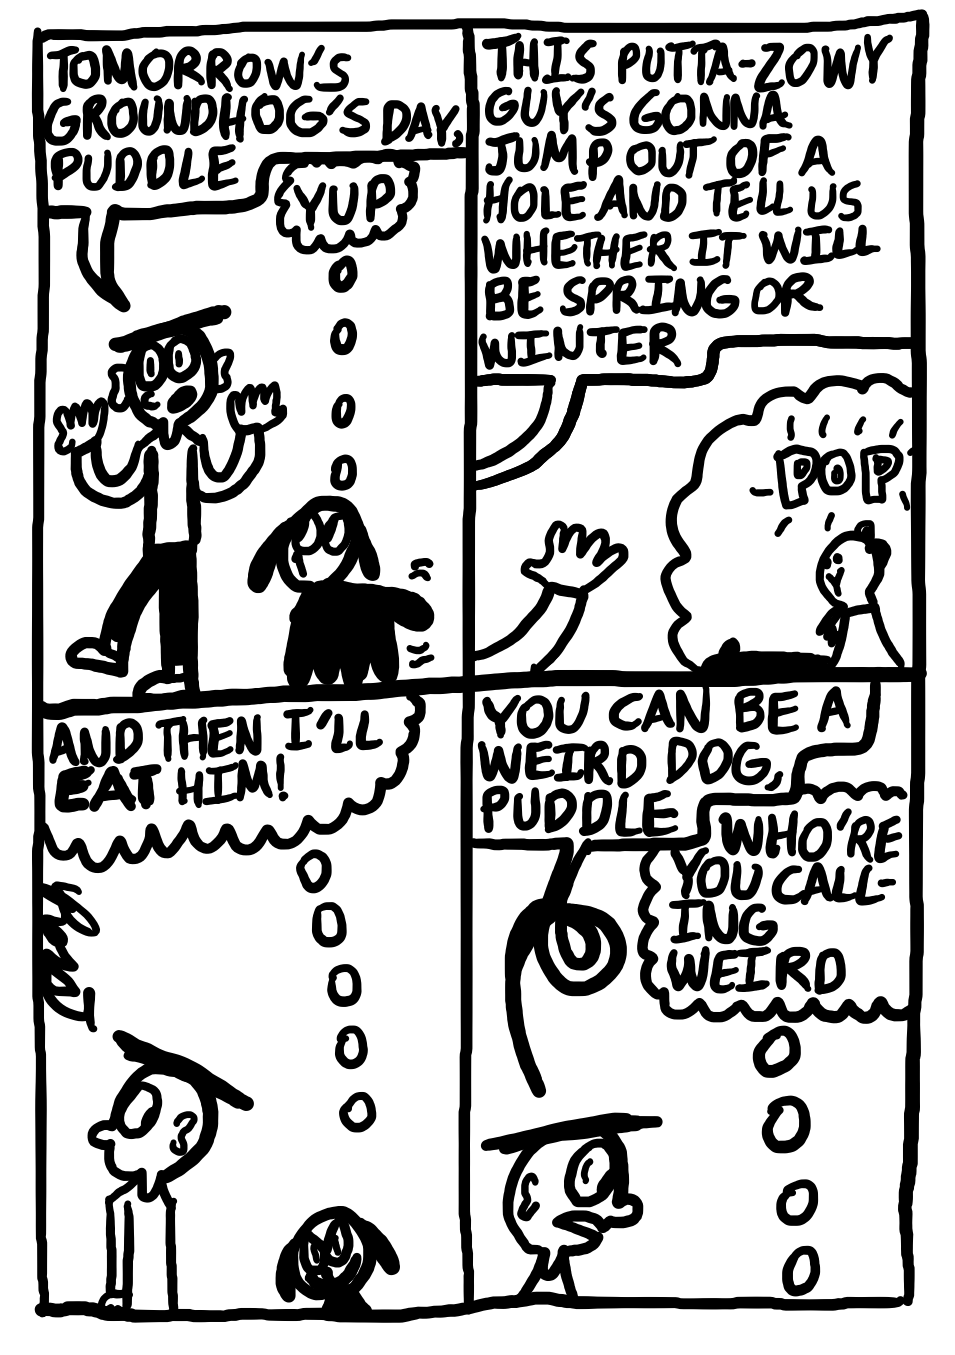 TOMORROW'S
GROUNDHOG'S DAY,
PUDDLE
YUP
THIS PUTTA-ZOWY
GUY'S GONNA
JUMP OUT OF A
HOLE AND TELL US
WHETHER IT WILL
BE SPRING OR
WINTER
POP
AND THEN I'LL
EAT HIM!
YOU CAN BE A
WEIRD DOG,
PUDDLE
WHO'RE
YOU CALL-
ING
WEIRD